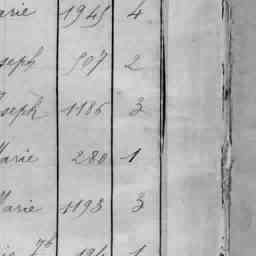 arie 1945 4
seph 507 2
oseph 1186 3
Marie 280 1
Marie 1193 3
194 1